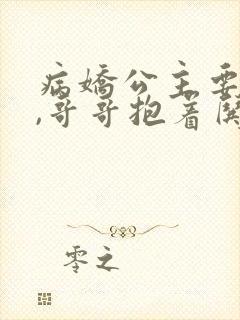 病嬌公主要
,哥哥抱着
零之